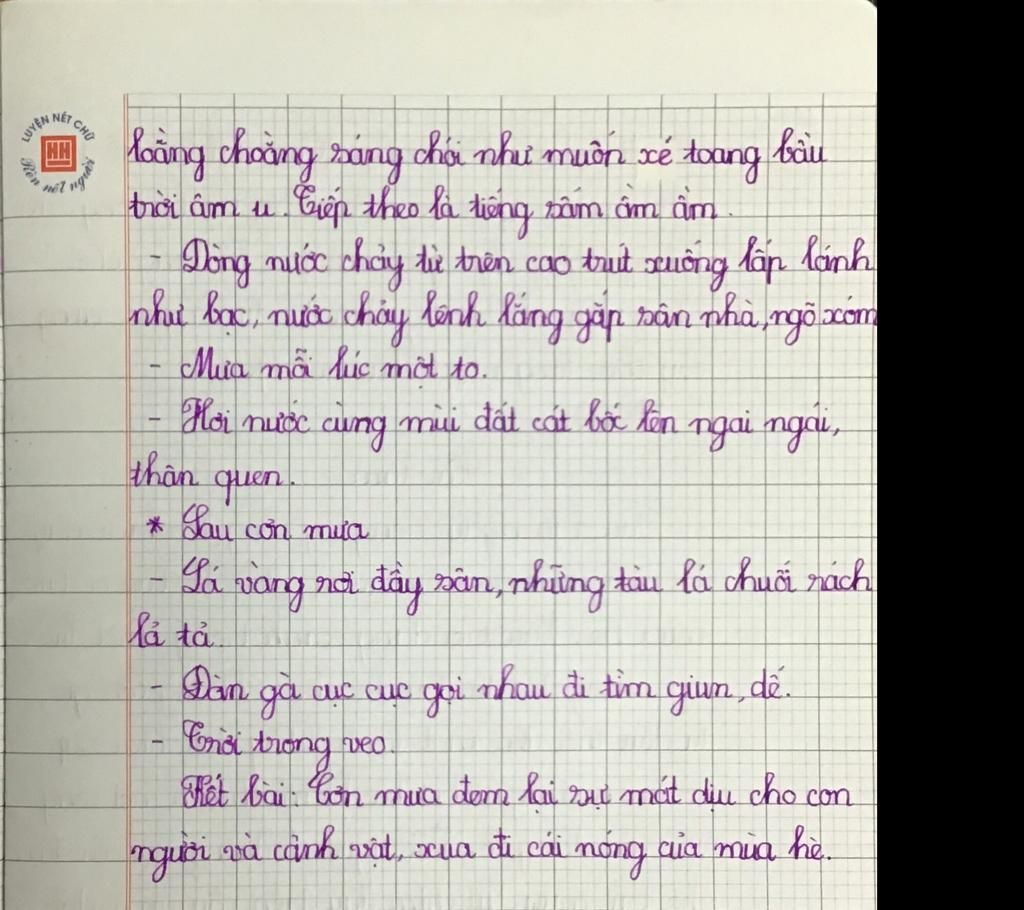 LUYỆN NÉT CHỮ
HH
Rèn nết người
loằng choằng sáng chói như muốn xé toang bầu
trời âm u. Tiếp theo là tiếng sấm ầm ầm.
- Dòng nước chảy từ trên cao trút xuống lấp lánh
như bạc, nước chảy lênh láng gắp sân nhà, ngõ xóm
- Mưa mỗi lúc một to.
- Hơi nước cùng mùi đất cát bốc lên ngai ngái,
thân quen.
* Sau cơn mưa
- Lá vàng rơi đầy sân, những tàu lá chuối rách
lả tả.
- Đàn gà cục cục gọi nhau đi tìm giun, dế.
- Trời trong veo.
Kết bài: Cơn mưa đem lại sự mát dịu cho con
người và cảnh vật, xua đi cái nóng của mùa hè.